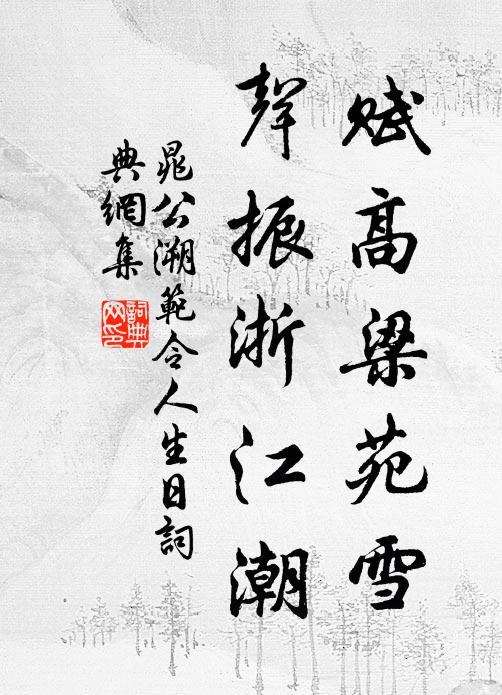 赋高梁苑雪
聲振浙江潮
晁公溯範令人生日詞
典網集
詞典网印